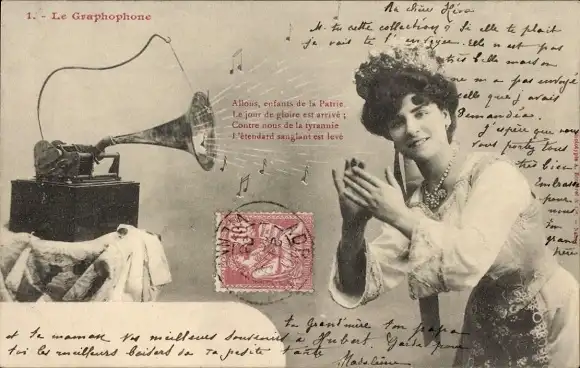 1. - Le Graphophone
Ma chère Héra
M. tu cette collection? Si elle te plait
je vais te l'envoyer. Elle n'est pas
très belle mais on
ne m'a pas envoyé
celle que j'avais
demandée.
J'espère que vous
vous portez tous
très bien
Embrasse
pour
nous
ton
grand
père
Allons, enfants de la Patrie.
Le jour de gloire est arrivé ;
Contre nous de la tyrannie
L'étendard sanglant est levé
et ta maman Nos meilleurs souvenirs
à Hubert. Garde pour
toi les meilleurs baisers de ta petite tante
ta Grand'mère ton papa
Madeleine